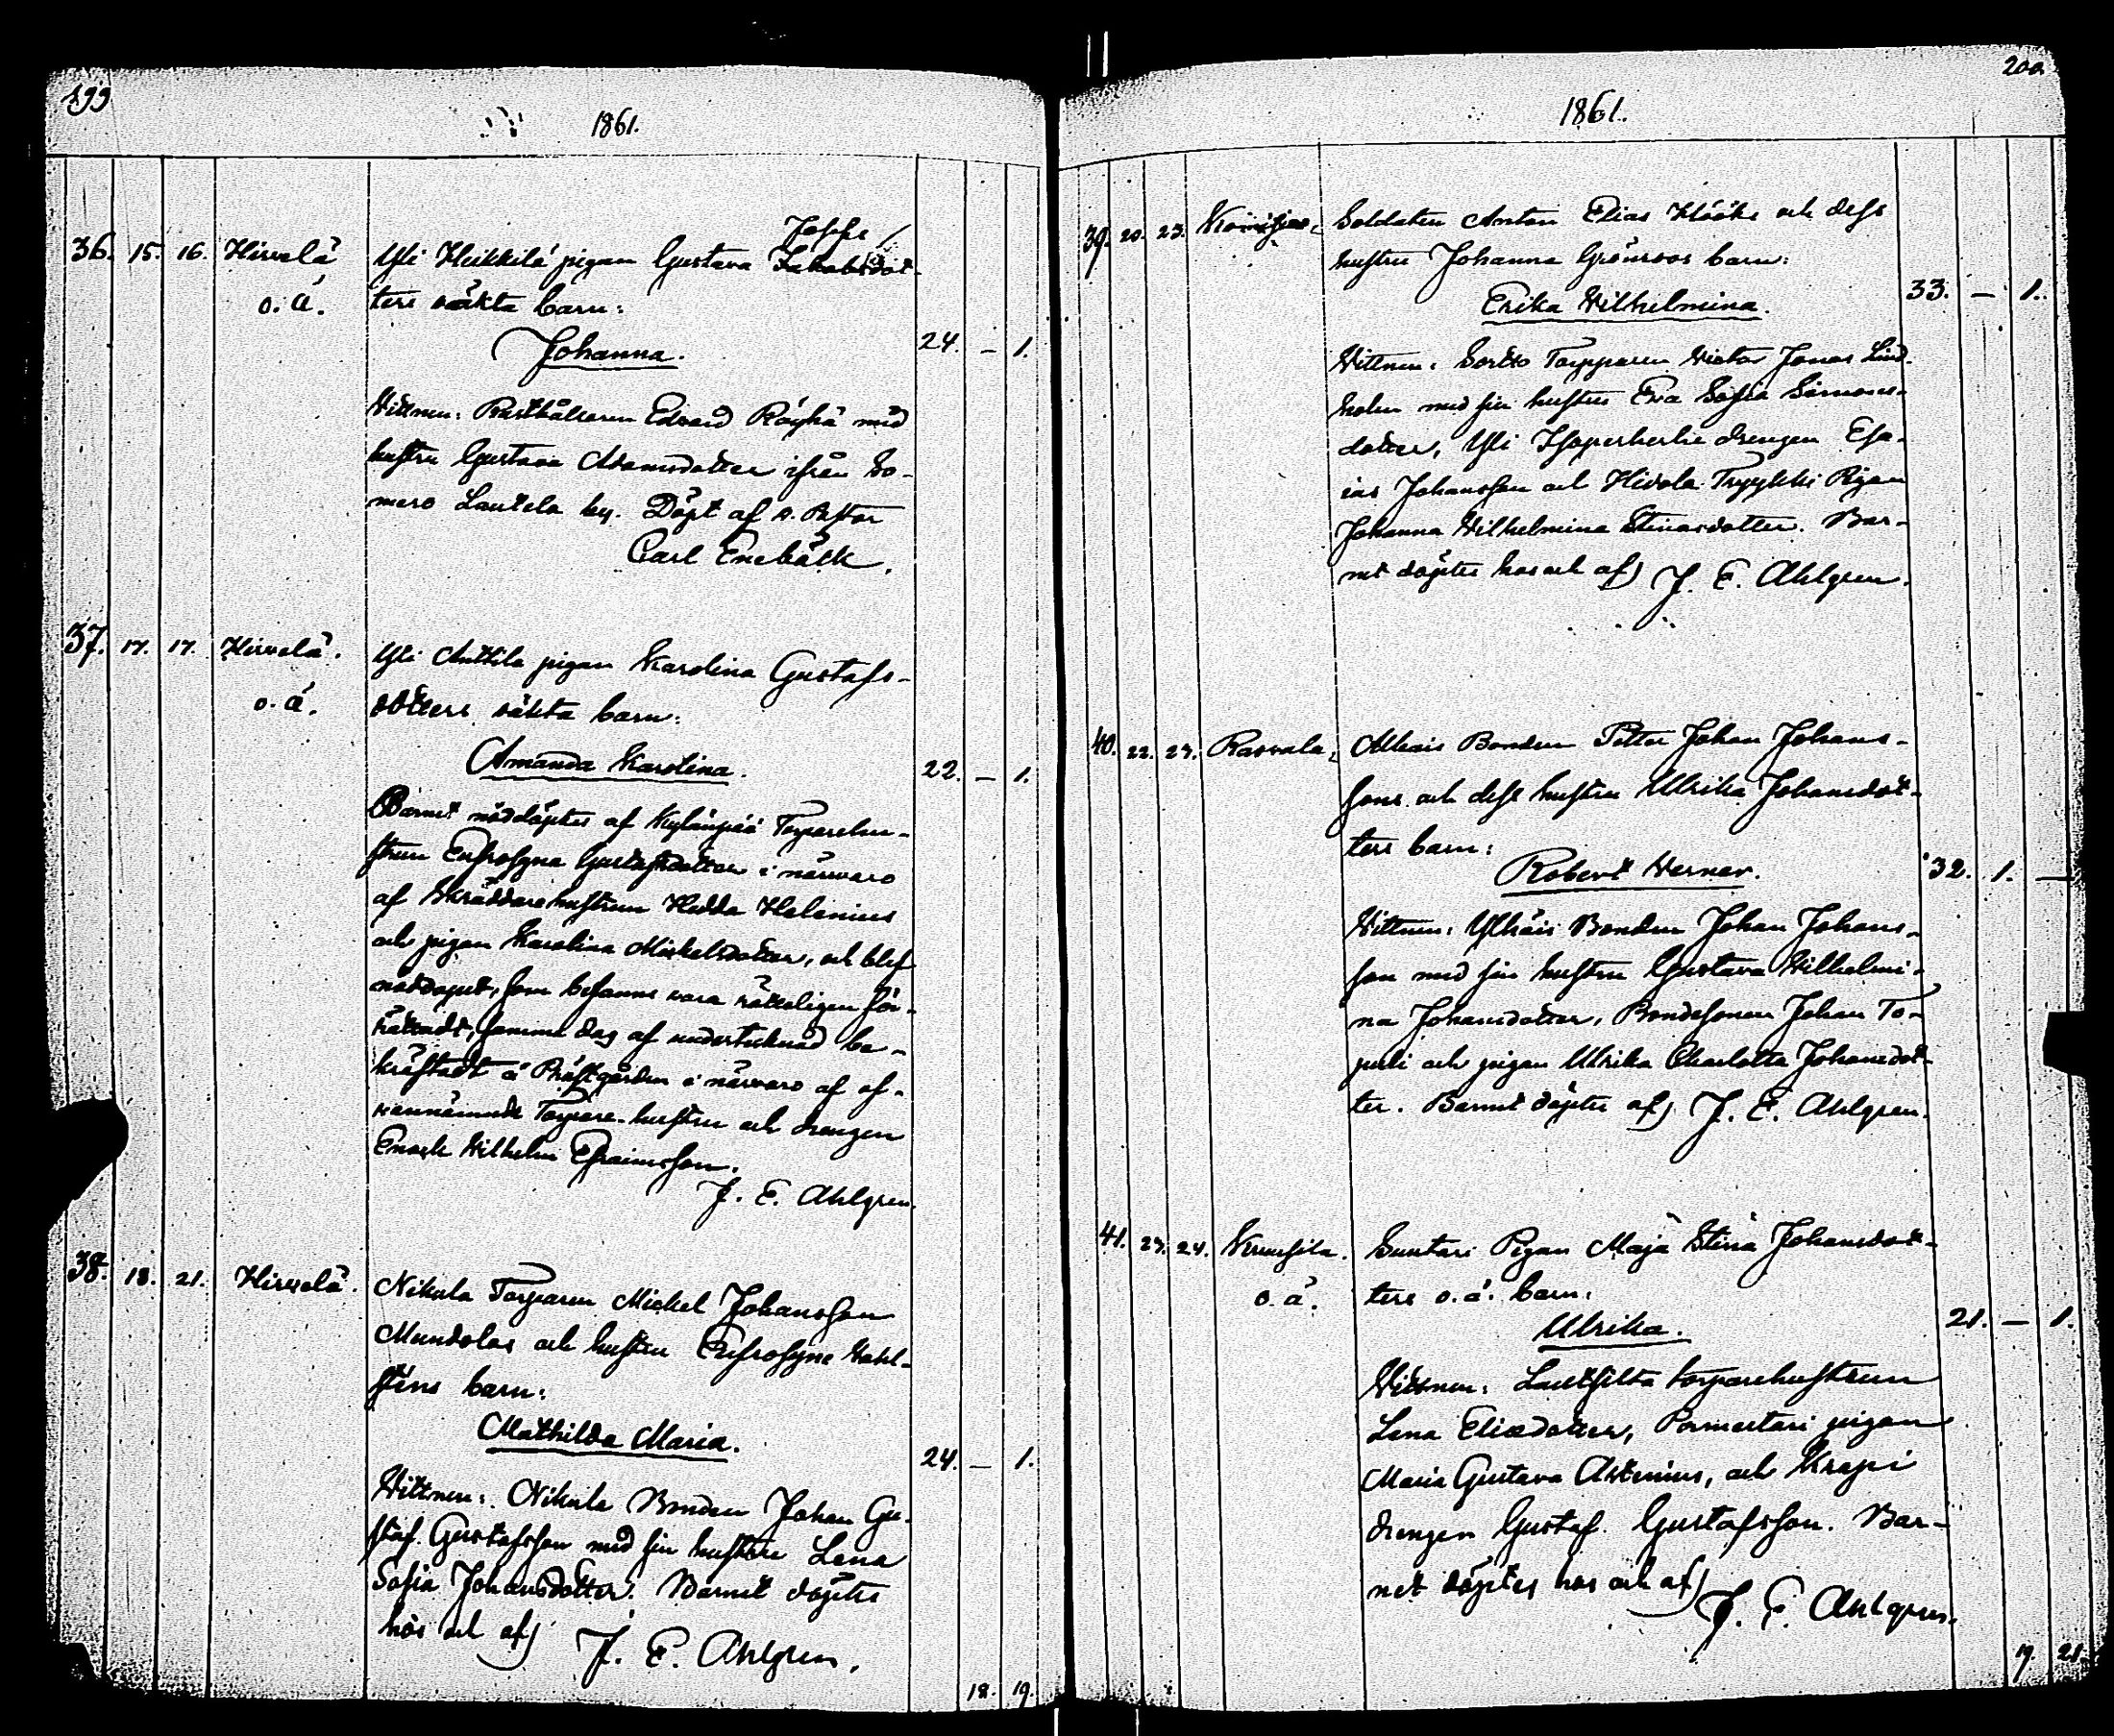 199
1861.
Jopps
36. 15. 16. Hirvelä Yli Heikkilä pigan Gustava Jakobsdot-
o. ä. ters oäkta barn:
Johanna. 24. – 1.
Vittnen: Rusthållaren Edvard Röyhä med
hustru Gustava Adamsdotter ifrån So-
mero Lautela by. Döpt af v. Pastor
Carl Enebäck.
37. 17. 17. Hirvelä. Yli Anttila pigan Karolina Gustafs-
o. ä. dotters oäkta barn:
Amanda Karolina. 22. – 1.
Barnet nöddöptes af Torparehu-
strun Eufrosyne Gustafsdotter i närvaro
af Skräddarehustrun Hedda Helenius
och pigan Karolina Mickelsdotter, och blef
noddopet, som befanns vara rätteligen för-
rättadt, samma dag af undertecknad be-
kräftadt å Prästgården i närvaro af of-
vannämnde Torpare-hustru och drengen
Enock Wilhelm Efraimsson.
J. E. Ahlgren.
38. 18. 21. Hirvelä. Nikula Torparen Mickel Johansson
Mundolas och hustru Eufrosyne Wahl-
sténs barn:
Mathilda Maria. 24. – 1.
Vittnen: Nikula Bonden Johan Gu-
staf Gustafsson med sin hustru Lena
Sofia Johansdotter. Barnet döptes
hos och af J. E. Ahlgren.
18. 19.
200
1861.
39. 20. 23. Soldaten Anton Elias Klööks och dess
hustru Johanna Grönroos barn:
Erika Wilhelmina. 33. – 1.
Vittnen: Sorkko Torpparen Victor Jonas Lind-
holm med sin hustru Eva Sofia Simons-
dotter, Yli drengen Esa-
ias Johansson och Hivola Tryykki Pigan
Johanna Wilhelmina Stinasdotter. Bar-
net döptes hos och af J. E. Ahlgren.
40. 22. 23. Rasvala, Alhais Bonden Petter Johan Johans-
sons och dess hustru Ulrika Johansdot-
ters barn:
Robert Werner. 32. 1. –
Vittnen: Ylhäis Bonden Johan Johans-
son med sin hustru Gustava Wilhelmi-
na Johansdotter, Bondesonen Johan To-
puli och pigan Ulrika Charlotta Johansdot-
ter. Barnet döptes af J. E. Ahlgren.
41. 23. 24. Suntari Pigan Maja Stina Johansdot-
o. ä. ters o. ä. barn:
Ulrika. 21. – 1.
Vittnen: Lautsilta torparehustrun
Lena Eliædotter, pigan
Maria Gustava Astenius, och Krapi
drengen Gustaf Gustafsson. Bar-
net döptes hos och af J. E. Ahlgren.
19. 21.